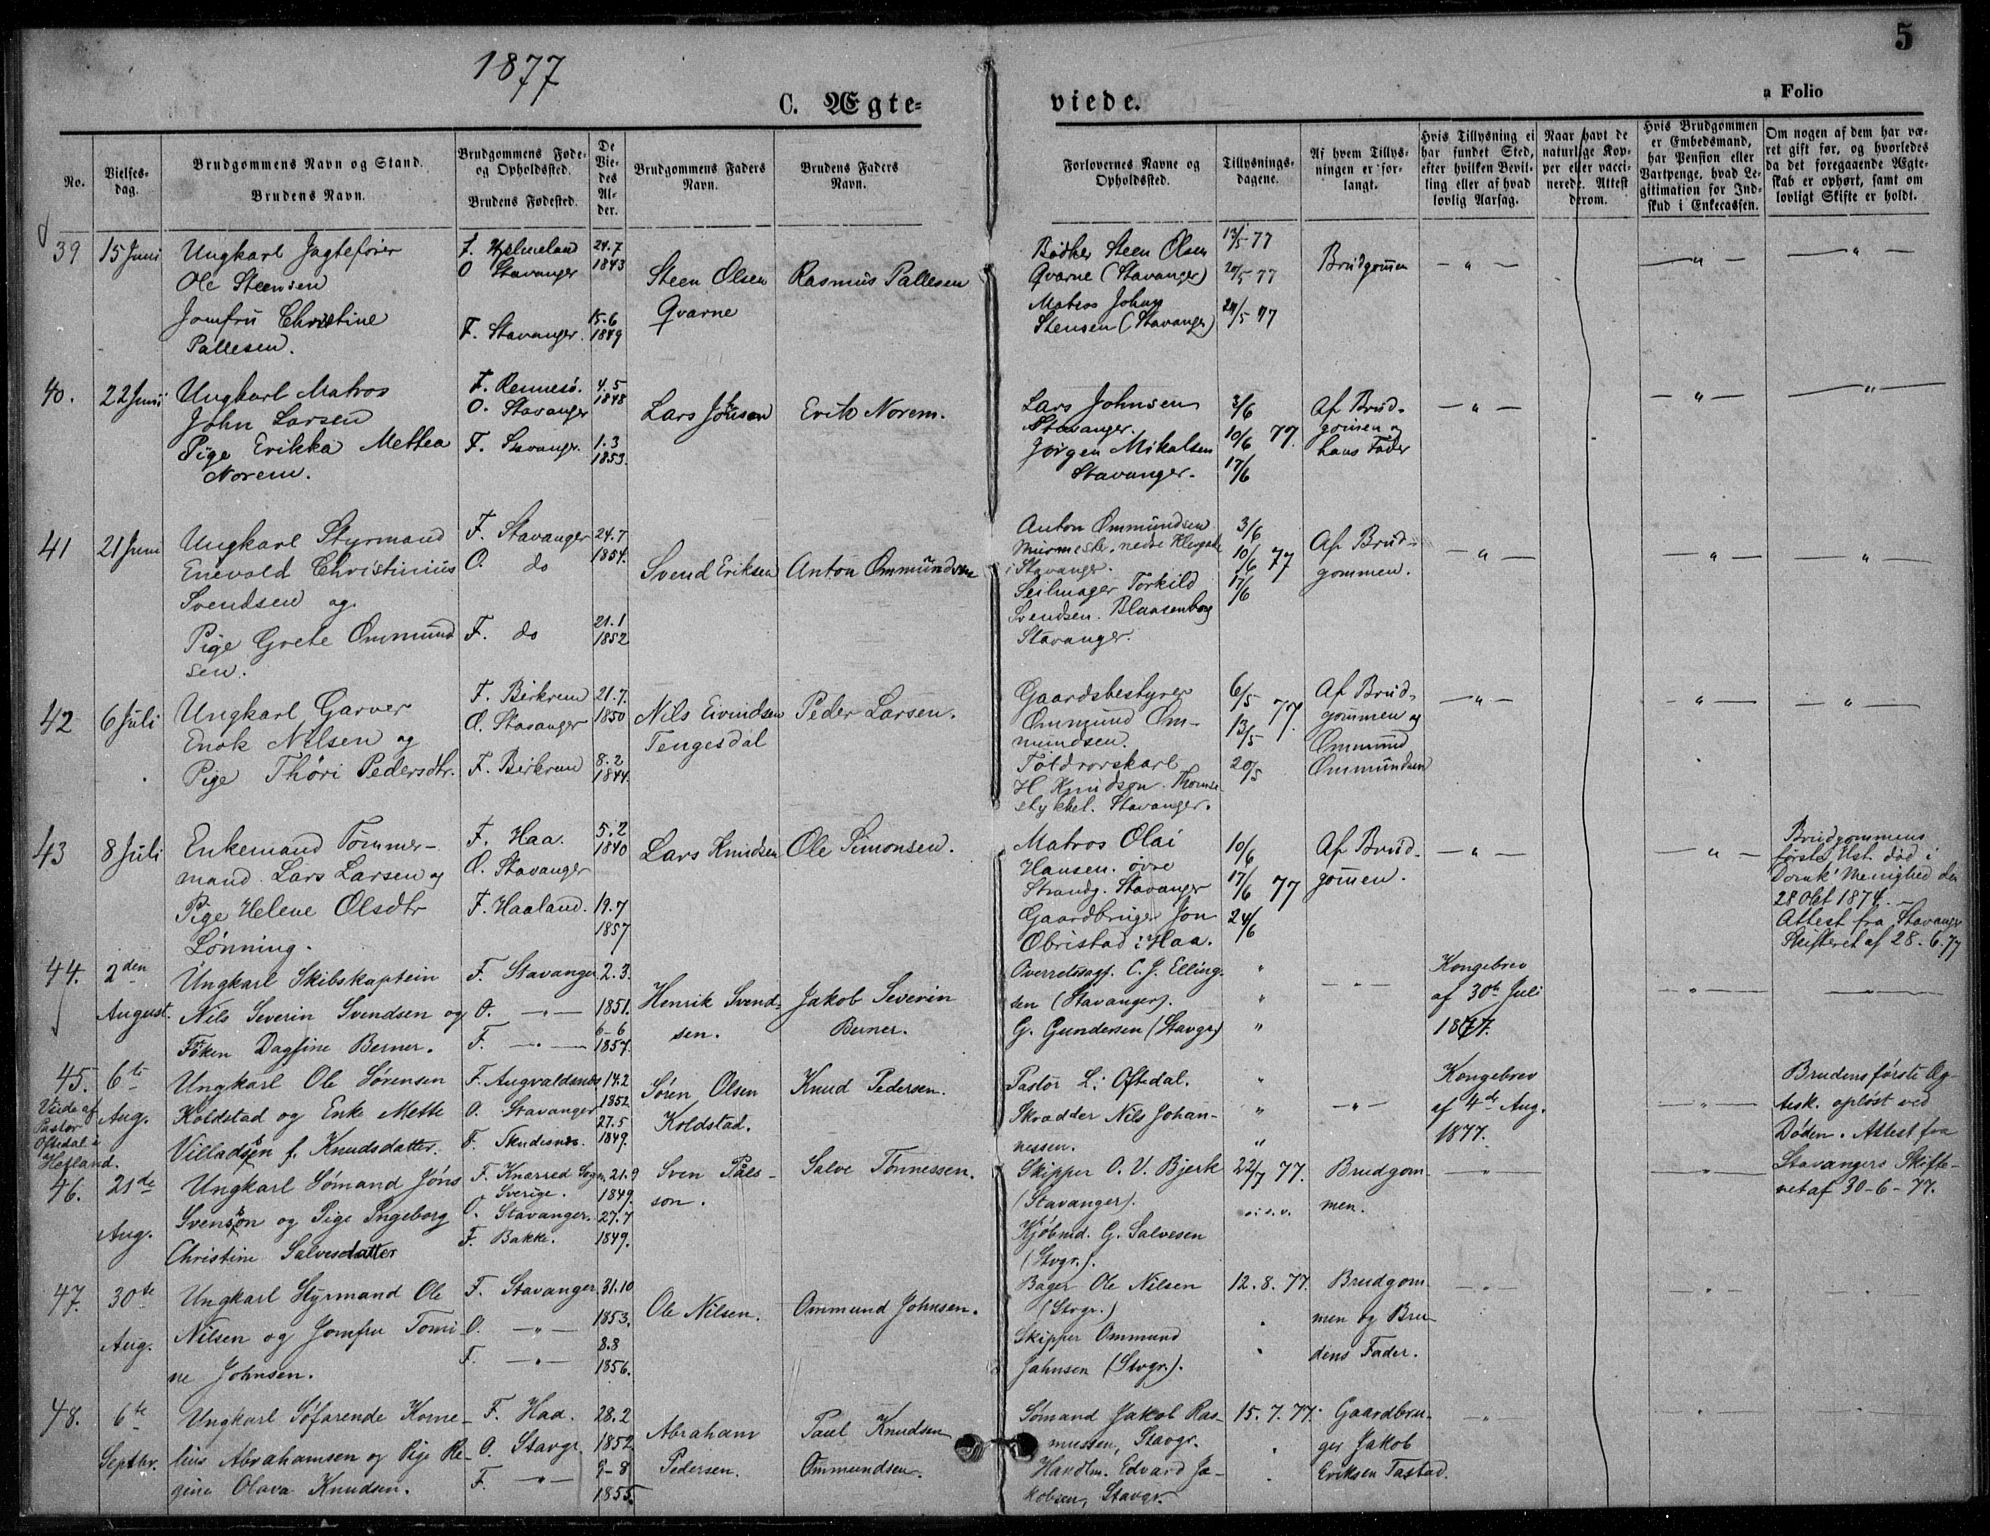 1877
5
C. Ægte-
viede.
a Folio
No.
Vielses-
dag.
Brudgommens Navn og Stand.
Brudens Navn.
Brudgommens Føde-
og Opholdssted.
Brudens Fødested.
De
Vie-
des
Al-
der.
Brudgommens Faders
Navn.
Brudens Faders
Navn.
Forlovernes Navne og
Opholdssted.
Tillysnings-
dagene.
Af hvem Tillys-
ningen er for-
langt.
Hvis Tillysning ei
har fundet Sted,
efter hvilken Bevil-
ling eller af hvad
lovlig Aarsag.
Naar havt de
naturlige Kop-
per eller vacci-
nerede. Attest
derom.
Hvis Brudgommen
er Embedsmand,
har Pension eller
Vartpenge, hvad Le-
gitimation for Ind-
skud i Enkecassen.
Om nogen af dem har væ-
ret gift før, og hvorledes
da det foregaaende Ægte-
skab er ophørt, samt om
lovligt Skifte er holdt.
39
15 Juni
Ungkarl Jagtefører
Ole Steensen
Jomfru Christine
Pallesen.
F. Hjelmeland
O Stavanger
F. Stavanger.
24.7
1843
15.6
1849
Steen Olsen
Qvarne
Rasmus Pallesen
Bødker Steen Olsen
Qvarne (Stavanger)
Matros Johan
Stensen (Stavanger)
13/5 77
20/5 77
27/5 77
Brudgomen
— " —
— " —
— " —
40.
22 Juni
Ungkarl Matros
John Larsen
Pige Erikka Mettea
Norem.
F. Rennesø.
O. Stavanger
F. Stavanger.
4.5
1848
1.3
1853.
Lars Johnsen
Erik Norem.
Lars Johnsen
Stavanger.
Jørgen Mikalsen
Stavanger.
3/6
10/6 77.
17/6
Af Brud-
gomen og
hans Fader
— " —
— " —
— " —
41
21 Juni
Ungkarl Styrmand
Enevold Christinius
Svendsen og
Pige Grete Ommund
sen.
F. Stavanger
O. do
F. do
24.7
1854.
21.1
1852
Svend Eriksen
Anton Ommundsen
Anton Ommundsen
Murmester, nedre
i Stavanger.
Seilmager Torkild
Svendsen. Blaasenborg
Stavanger.
3/6
10/6 77
17/6
Af Brud-
gommen.
— " —
— " —
— " —
42
6 Juli
Ungkarl Garver
Enok Nilsen og
Pige Thøri Pedersdtr.
F. Birkrem
O. Stavanger
F. Birkrem
21.7.
1850
8.2
1844.
Nils Eivindsen
Tengesdal
Peder Larsen.
Gaardsbestyrer
Ommund Om-
mundsen.
Toldrorskarl
H Knudsen. Thomse
stykket. Stavanger.
6/5
13/5 77.
20/5
Af Brud-
gommen og
Ommund
Ommundsen
— " —
— " —
— " —
43
8 Juli
Enkemand Tømmer-
mand. Lars Larsen og
Pige Helene Olsdtr
Lønning.
F. Haa.
O. Stavanger
F. Haaland.
5.2
1840
19.7
1857
Lars Knudsen
Ole Simonsen.
Matros Olai
Hansen. øvre
Strandg. Stavanger
Gaardbruger Jon
Obristad i Haa.
10/6
17/6 77
24/6
Af Brud-
gomen.
— " —
— " —
Brudgommens
første Ust. død i
Domk. Menighed den
28 Okt 1874. —
Attest fra Stavanger
Skifteret af 28. 6. 77
44.
2den
August.
Ungkarl Skibskaptein
Nils Severin Svendsen og
Frøken Dagfine Berner.
F. Stavanger
O. — " —
F. — " —
2.3.
1851.
6-6
1857.
Henrik Svend-
sen.
Jakob Severin
Berner.
Overretssagf. C. J. Elling-
sen (Stavanger).
G. Gundersen (Stavgr)
"
"
"
— " —
Kongebrev
af 30te Juli
1877.
— " —
— " —
45.
Viede af
Pastor
Oftedal i
Hetland.
6te
Aug.
Ungkarl Ole Sørensen
Koldstad og Enke Mette
Villadsen f. Knudsdatter.
F. Augvaldsnes
O. Stavanger
F. Skudesnes.
14.2
1852.
27.5
1849.
Søren Olsen
Koldstad.
Knud Pedersen.
Pastor L. Oftedal.
Skrædder Nils Johan-
nessen.
"
"
"
— " —
Kongebrev
af 4de Aug.
1877.
— " —
Brudens første Æg-
tesk. opløst ved
Døden. Attest fra
Stavangers Skifte-
ret af 30-6-77.
46.
21de
Aug.
Ungkarl Sømand Jøns
Svenson og Pige Ingeborg
Christine Salvesdatter
F. Knærred Sogn
Sverige.
O. Stavanger.
F. Bakke.
21.9
1849.
27.7
1849.
Sven Påls-
son.
Salve Tønnessen.
Skipper O. V. Bjerk
(Stavanger).
Kjøbmd. G. Salvesen
(Stvgr.).
22/7 77.
o. s. v.
Brudgom-
men.
— " —
— " —
47.
30te
Aug.
Ungkarl Styrmand Ole
Nilsen og Jomfru Tomi-
ne Johnsen.
F. Stavanger.
O. — " —
F. — " —
31.10
1853.
8.8
1856.
Ole Nilsen.
Ommund Johnsen.
Bager Ole Nilsen
(Stvgr.)
Skipper Ommund
Jahnsen (Stvgr).
12. 8. 77.
Brudgom-
men og Bru-
dens Fader.
— " —
48.
6te
Septbr.
Ungkarl Søfarende Korne-
lius Abrahamsen og Pige Re-
gine Olava Knudsen.
F. Haa.
O. Stavgr.
F. — " —
28.2
1852
9-8
1855.
Abraham
Pedersen.
Paul Knudsen
Ommundsen.
Sømand Jakob Ras-
mussen, Stavgr.
Handlm. Edvard Ja-
kobsen, Stavgr.
15. 7. 77.
Gaardbru-
ger Jakob
Eriksen Tastad.
— " —